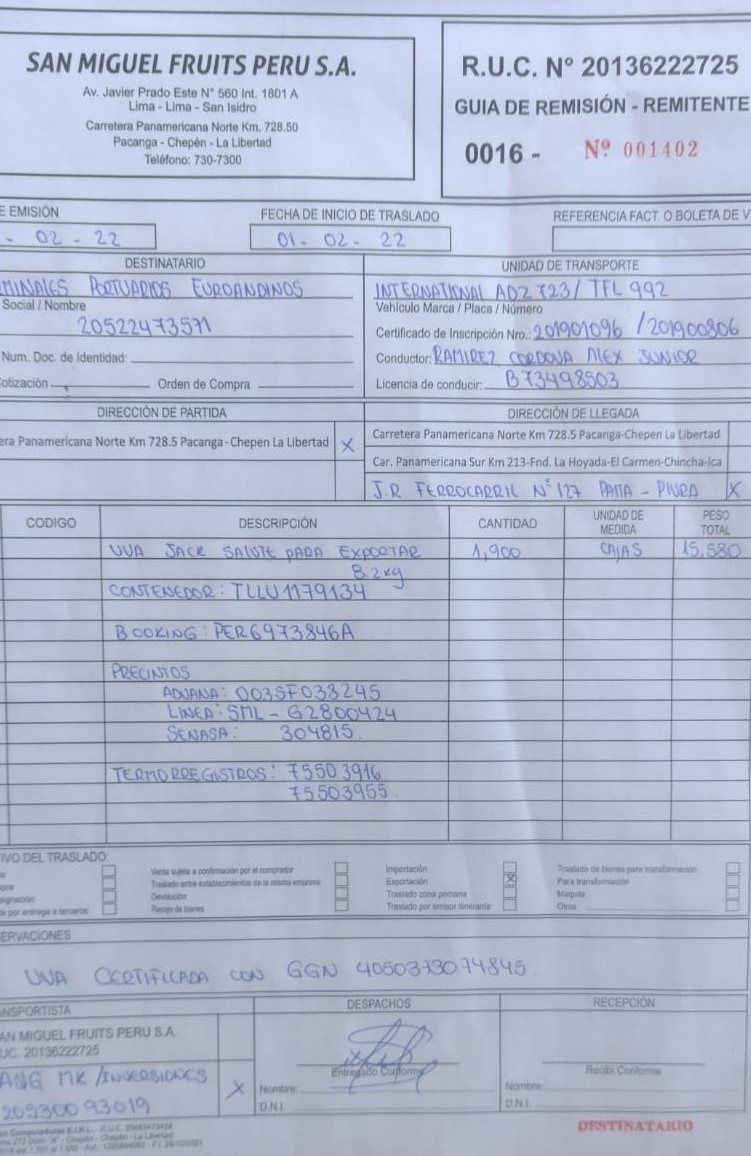 SAN MIGUEL FRUITS PERU S.A.
Av. Javier Prado Este N° 560 Int. 1801 A
Lima - Lima - San Isidro
Carretera Panamericana Norte Km. 728.50
Pacanga - Chepén - La Libertad
Teléfono: 730-7300
R.U.C. N° 20136222725
GUIA DE REMISIÓN - REMITENTE
0016 - Nº 001402
E EMISIÓN
FECHA DE INICIO DE TRASLADO
REFERENCIA FACT. O BOLETA DE V
- 02 - 22
01 - 02 - 22
DESTINATARIO
MINALES PORTUARIOS EUROANDINOS
Social / Nombre
20522473571
Num. Doc. de Identidad:
otización
Orden de Compra
UNIDAD DE TRANSPORTE
INTERNATIONAL ADZ 723 / TFL 992
Vehículo Marca / Placa / Número
Certificado de Inscripción Nro.: 201901096 / 201900806
Conductor: RAMIREZ CORDOVA ALEX JUNIOR
Licencia de conducir: B73498503
DIRECCIÓN DE PARTIDA
era Panamericana Norte Km 728.5 Pacanga - Chepen La Libertad X
DIRECCIÓN DE LLEGADA
Carretera Panamericana Norte Km 728.5 Pacanga-Chepen La Libertad
Car. Panamericana Sur Km 213-Fnd. La Hoyada-El Carmen-Chincha-Ica
J.R FERROCARRIL N° 127 PAITA - PIURA X
CODIGO DESCRIPCIÓN CANTIDAD UNIDAD DE MEDIDA PESO TOTAL
UVA JACK SALUTE PARA EXPORTAR 1,900 CAJAS 15.580
8.2kg
CONTENEDOR: TLLU1179134
BOOKING: PER6973846A
PRECINTOS
ADUANA: 003SF038245
LINEA: SML - G2800424
SENASA: 304815
TERMORREGISTROS: 75503916
75503955
IVO DEL TRASLADO:
Venta sujeta a confirmación por el comprador
Traslado entre establecimientos de la misma empresa
Devolución
Recojo de bienes
signación
por entrega a terceros
Importación
Exportación X
Traslado zona primaria
Traslado por emisor itinerante
Traslado de bienes para transformación
Para transformación
Maquila
Otros
ERVACIONES
UVA CERTIFICADA CON GGN 4050373074845
ANSPORTISTA
AN MIGUEL FRUITS PERU S.A.
UC. 20136222725
ANG MK / INVERSIONES X
20530093019
DESPACHOS
Entregado Conforme
Nombre:
D.N.I.
RECEPCIÓN
Recibí Conforme
Nombre:
D.N.I.
DESTINATARIO